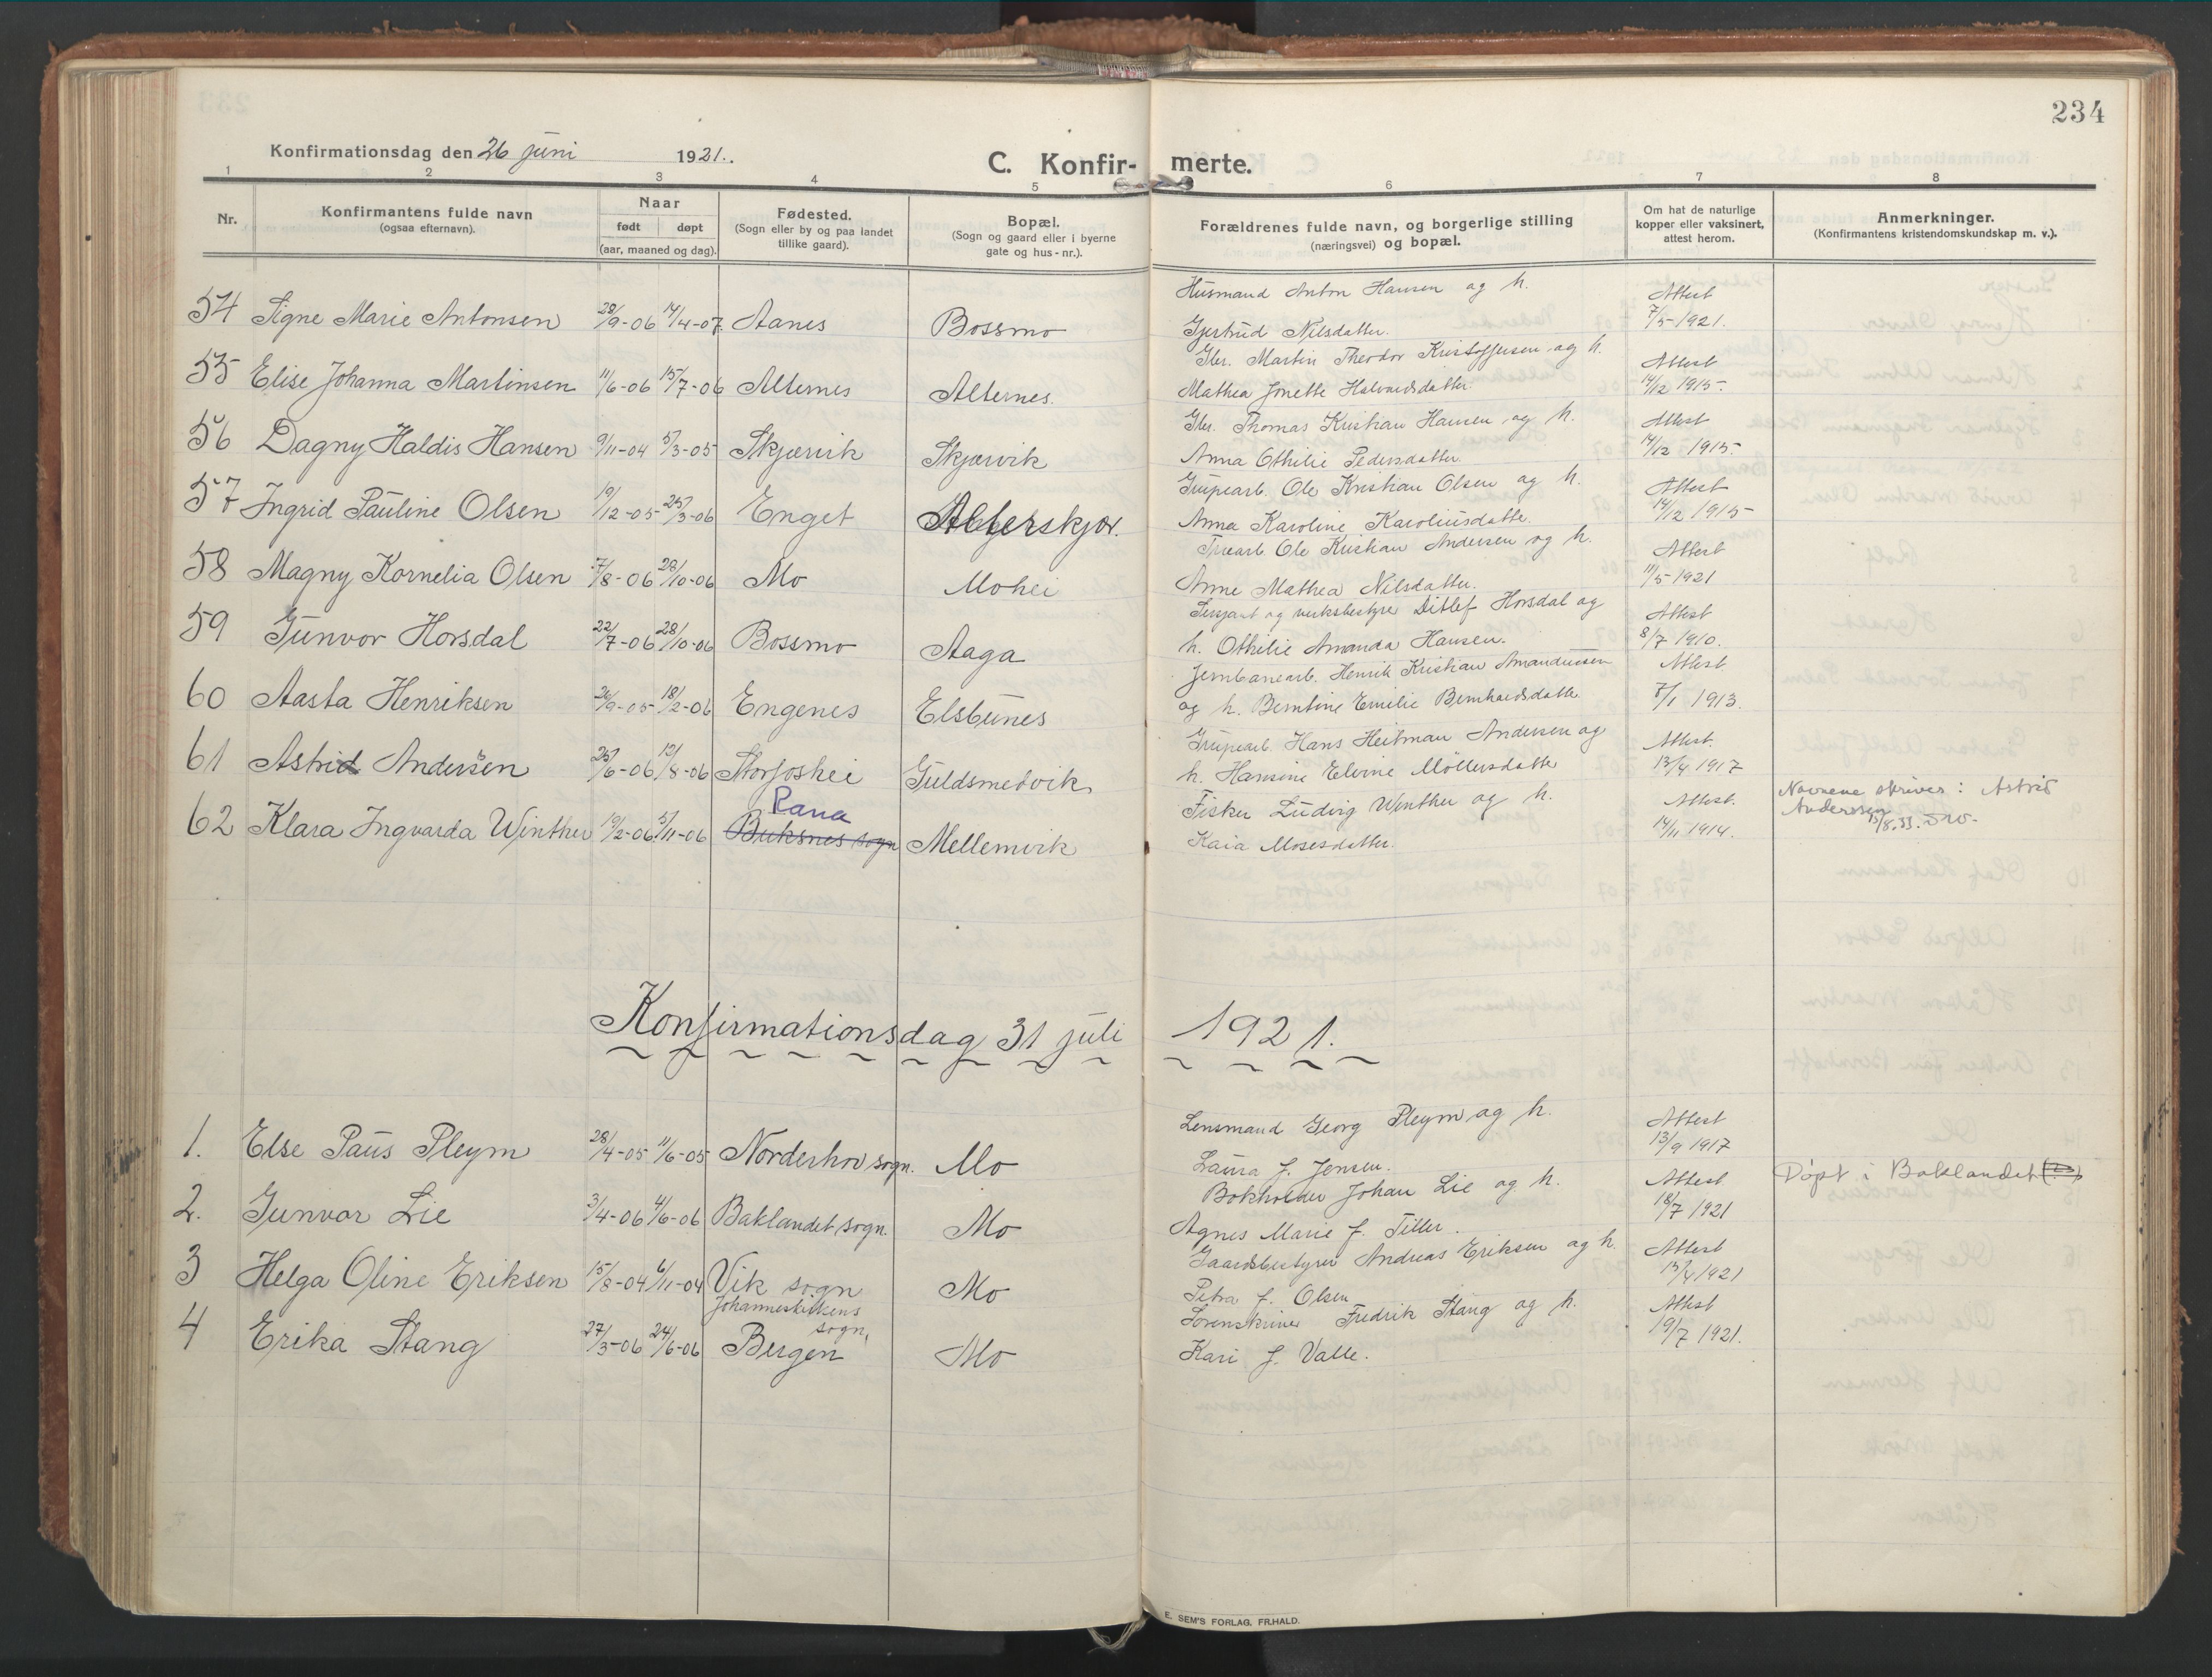 234
Konfirmationsdag den 26 juni 1921.
C. Konfir- merte.
1 2 3 4 5 6 7 8
Nr. Konfirmantens fulde navn (ogsaa efternavn). Naar født døpt (aar, maaned og dag). Fødested. (Sogn eller by og paa landet tillike gaard). Bopæl. (Sogn og gaard eller i byerne gate og hus-nr.). Forældrenes fulde navn, og borgerlige stilling (næringsvei) og bopæl. Om hat de naturlige kopper eller vaksinert, attest herom. Anmerkninger. (Konfirmantens kristendomskundskap m. v.).
54 Signe Marie Antonsen 28/9-06 14/4-07 Aanes Bossmo Husmand Anton Hansen og h. Attest
Gjertrud Nilsdatter. 7/5-1921.
55 Elise Johanna Martinsen 11/6-06 15/7-06 Alternes Alternes. Gbr. Martin Theodor Kristoffersen og h. Attest
Mathea Jonette Halvardsdatter. 14/12 1915.
56 Dagny Haldis Hansen 9/11-04 5/3-05 Skjærvik Skjærvik Gbr. Thomas Kristian Hansen og h. Attest
Anna Othilie Pedersdatter 14/12 1915.
57 Ingrid Pauline Olsen 19/12-05 25/3-06 Enget Alterskjær. Grubearb. Ole Kristian Olsen og h. Attest
Anna Karoline Karoliusdatter. 14/12 1915
58 Magny Kornelia Olsen 7/8-06 28/10-06 Mo Mohei Ole Kristian Andersen og h. Attest
Anne Mathea Nilsdatter. 11/5-1921
59 Gunvor Horsdal 22/7-06 28/10-06 Bossmo Aaga Sersjant og verksbestyrer Ditlef Horsdal og Attest
h. Othilie Amanda Hansen. 8/7 1910.
60 Aasta Henriksen 18/2-06 Engenes Elsbunes Jernbanearb. Henrik Kristian Amandussen Attest
og h. Berntine Emilie Bernhardsdatter 7/1 1913.
61 Astrid Andersen 25/6-06 12/8-06 Storfoshei Guldsmedvik Grubearb. Hans Heitman Andersen og Attest.
h. Hansine Elvine Möllersdatter 13/4 1917
62 Klara Ingvarda Winther 19/2-06 5/11-06 Rana Buksnes sogn Mellemvik Fisker Ludvig Winther og h. Attest. Navnene skrives: Astrid Anderssen 15/8.33.
Kaia Mosesdatter. 14/11 1914.
Konfirmationsdag 31 juli 1921.
1. Else Paus Pleym 28/4-05 11/6-05 Norderhov sogn. Mo Lensmand Georg Pleym og h. Attest
Laura f. Jensen. 13/9 1917
2. Gunvor Lie 3/4-06 4/6-06 Baklandet sogn. Mo Bokholder Johan Lie og h. Attest Döpt i Baklandet
Agnes Marie f. Tiller. 18/7 1921
3 Helga Oline Eriksen 15/8-04 6/11-04 Vik sogn Mo Gaardsbestyrer Andreas Eriksen og h. Attest
Petra f. Olsen 13/4 1921
4 Erika Stang 27/3-06 24/6-06 Johanneskirkens sogn, Bergen Mo Sorenskriver Fredrik Stang og h. Attest
Kari f. Valle. 19/7 1921.
E. SEM'S FORLAG. FR.HALD.